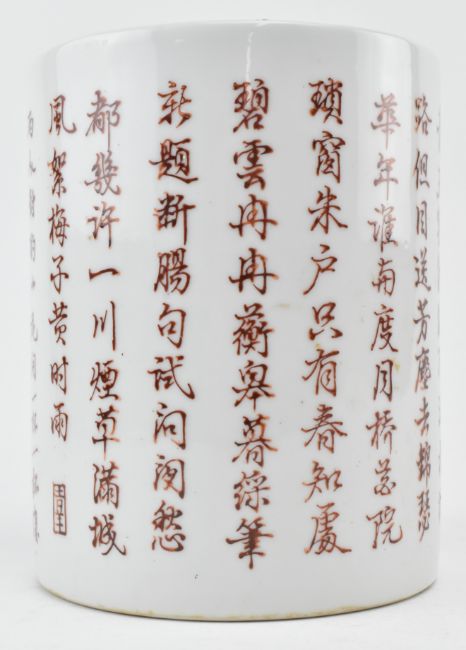 路但目送芳塵去錦瑟
華年誰與度月橋花院
瑣窗朱户只有春知處
碧雲冉冉蘅皋暮綵筆
新題斷腸句試问閒愁
都幾許一川煙草滿城
風絮梅子黄时雨
兩人對酌山花開一杯一杯復